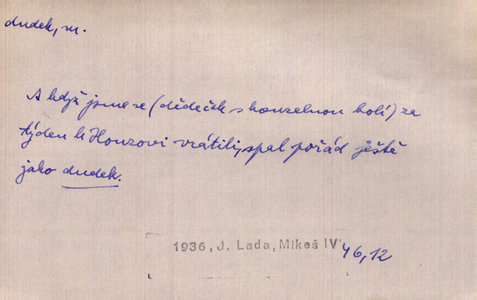 dudek, m.
A když jsme se (dědeček s kouzelnou holí) za
týden k Honzovi vrátili, spal pořád ještě
jako dudek.
1936, J. Lada, Mikeš IV 46,12